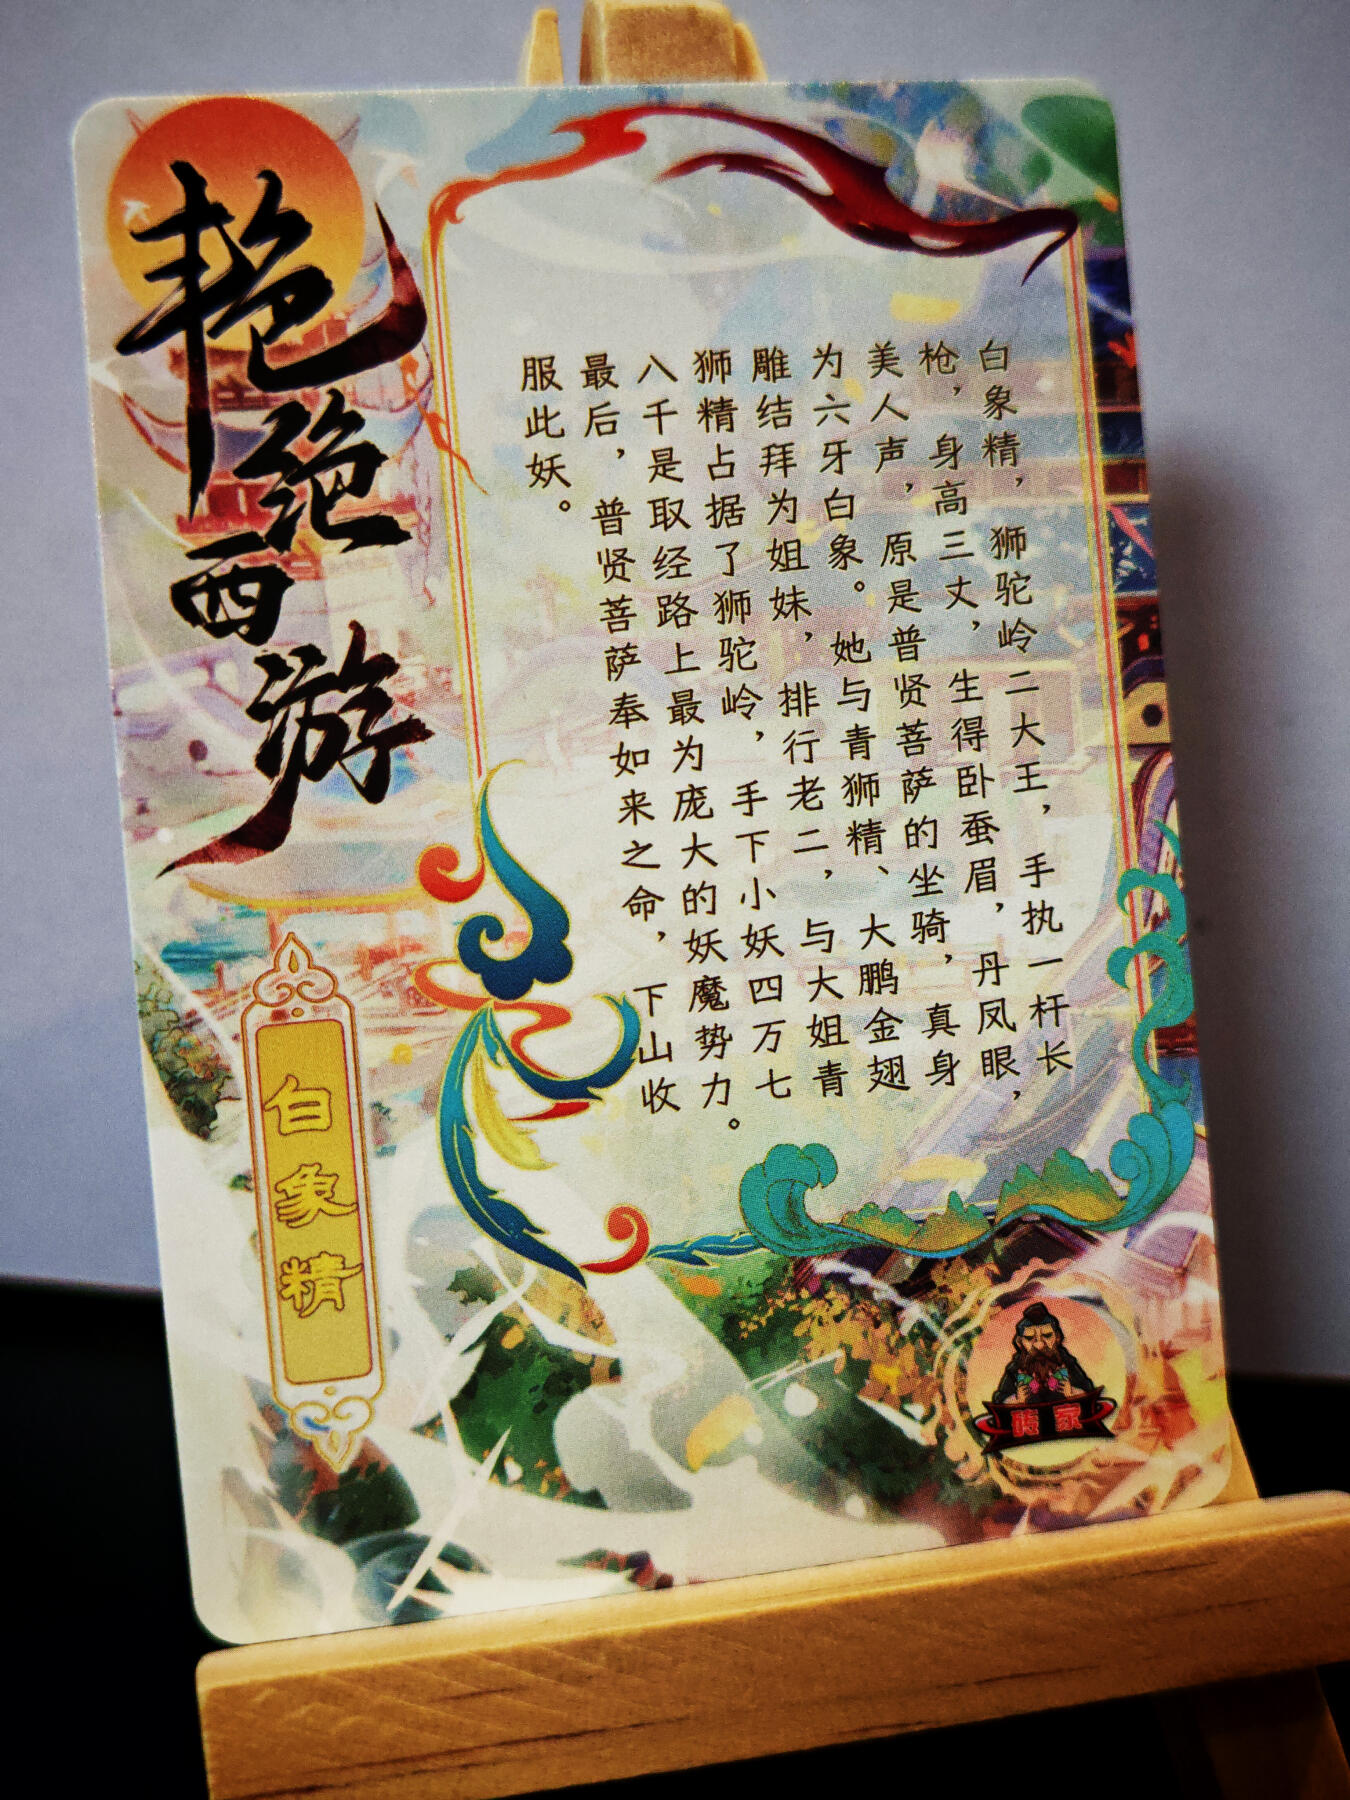 艳绝西游
白象精
白象精，狮驼岭二大王，手执一杆长
枪，身高三丈，生得卧蚕眉，丹凤眼，
美人声，原是普贤菩萨的坐骑，真身
为六牙白象。她与青狮精、大鹏金翅
雕结拜为姐妹，排行老二，与大姐青
狮精占据了狮驼岭，手下小妖四万七
八千是取经路上最为庞大的妖魔势力。
最后，普贤菩萨奉如来之命，下山收
服此妖。
砖家